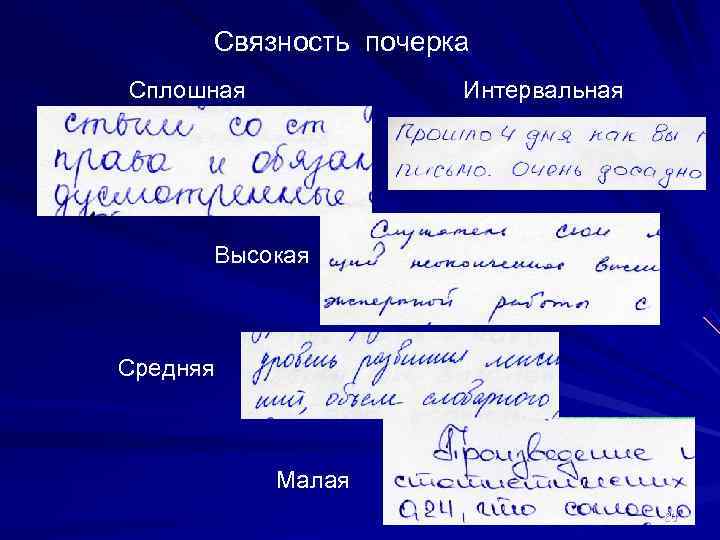 Связность почерка
Сплошная
Интервальная
ствии со ст
права и обязан
дусмотренные
Прошло 4 дня как Вы
письмо. Очень досадно
Высокая
Слушатель свои
щий неоконченное высш
экспертной работы с
Средняя
уровень развития лекси
ний, объем словарного
Малая
Произведение и
статистических
924, что согласно